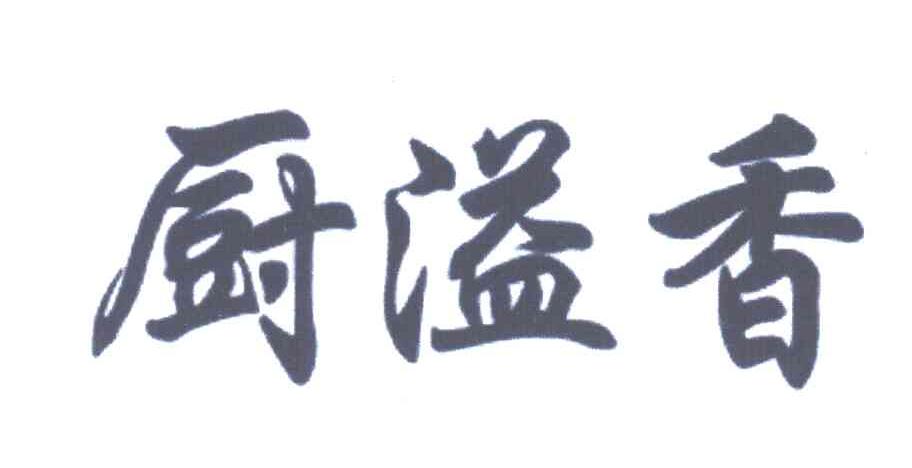 厨溢香